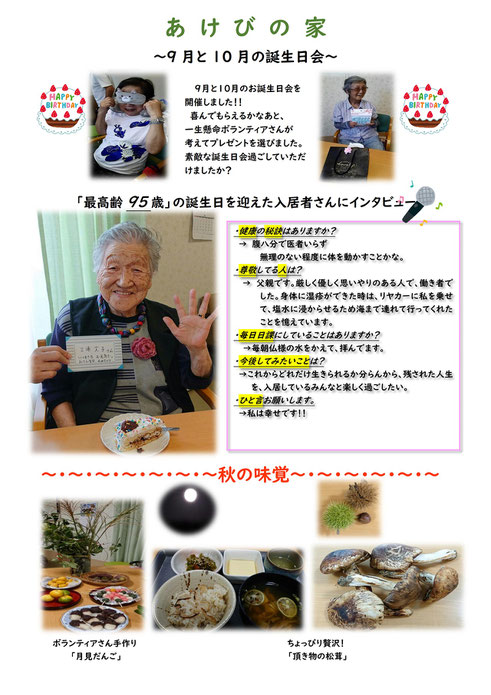 あけびの家
～9月と10月の誕生日会～
HAPPY
BIRTHDAY
HAPPY
BIRTHDAY
9月と10月のお誕生日会を
開催しました!!
喜んでもらえるかなあと、
一生懸命ボランティアさんが
考えてプレゼントを選びました。
素敵な誕生日会過ごしていただ
けましたか？
「最高齢 95歳」の誕生日を迎えた入居者さんにインタビュー
・健康の秘訣はありますか？
→ 腹八分で医者いらず
無理のない程度に体を動かすことかな。
・尊敬してる人は？
→ 父親です。厳しく優しく思いやりのある人で、働き者で
した。身体に湿疹ができた時は、リヤカーに私を乗せ
て、塩水に浸からせるため海まで連れて行ってくれた
ことを憶えています。
・毎日日課にしていることはありますか？
→毎朝仏様の水をかえて、拝んでます。
・今後してみたいことは？
→これからどれだけ生きられるか分らんから、残された人生
を、入居しているみんなと楽しく過ごしたい。
・ひと言お願いします。
→私は幸せです!!
～・～・～・～・～・～・～秋の味覚～・～・～・～・～・～・～
ボランティアさん手作り
「月見だんご」
ちょっぴり贅沢！
「頂き物の松茸」